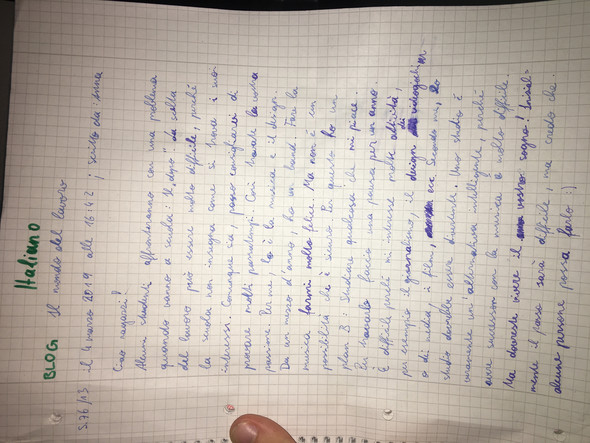 Italiano
BLOG Il mondo del lavoro
S.76/13 il 4 marzo 2019 alle 16:42 ; scritto da:
Ciao ragazzi!
Alcuni studenti affrontano con una problema
quando vanno a scuola: Il "dopo" scelta
del lavoro può essere molto difficile, perché
la scuola non insegna come si trova i suoi
interessi. Comunque sia, posso consigliarvi di
provare molti Così trovate la vostra
passione. Per me, la è la musica e il design.
Da un mezzo d'anno, ho un band. Fare la
musica farmi molto felice. Ma non è un
possibilità che è sicura. Per questo ho un
plan B: Studiare qualcosa che mi piace.
Per trovarlo faccio una pausa per un anno.
È difficile perché mi interesse molte attività,
per esempio il giornalismo, il design di videogiochi
o di media, i film, ecc. Secondo me, lo
studio dovrebbe essere divertente. Uno studio è
veramente un alternativa intelligente, perché
avere successo con la musica è molto difficile.
Ma dovreste vivere il vostro sogno! Inizial-
mente il passo sarà difficile, ma credo che
alcune persone possa farlo :)